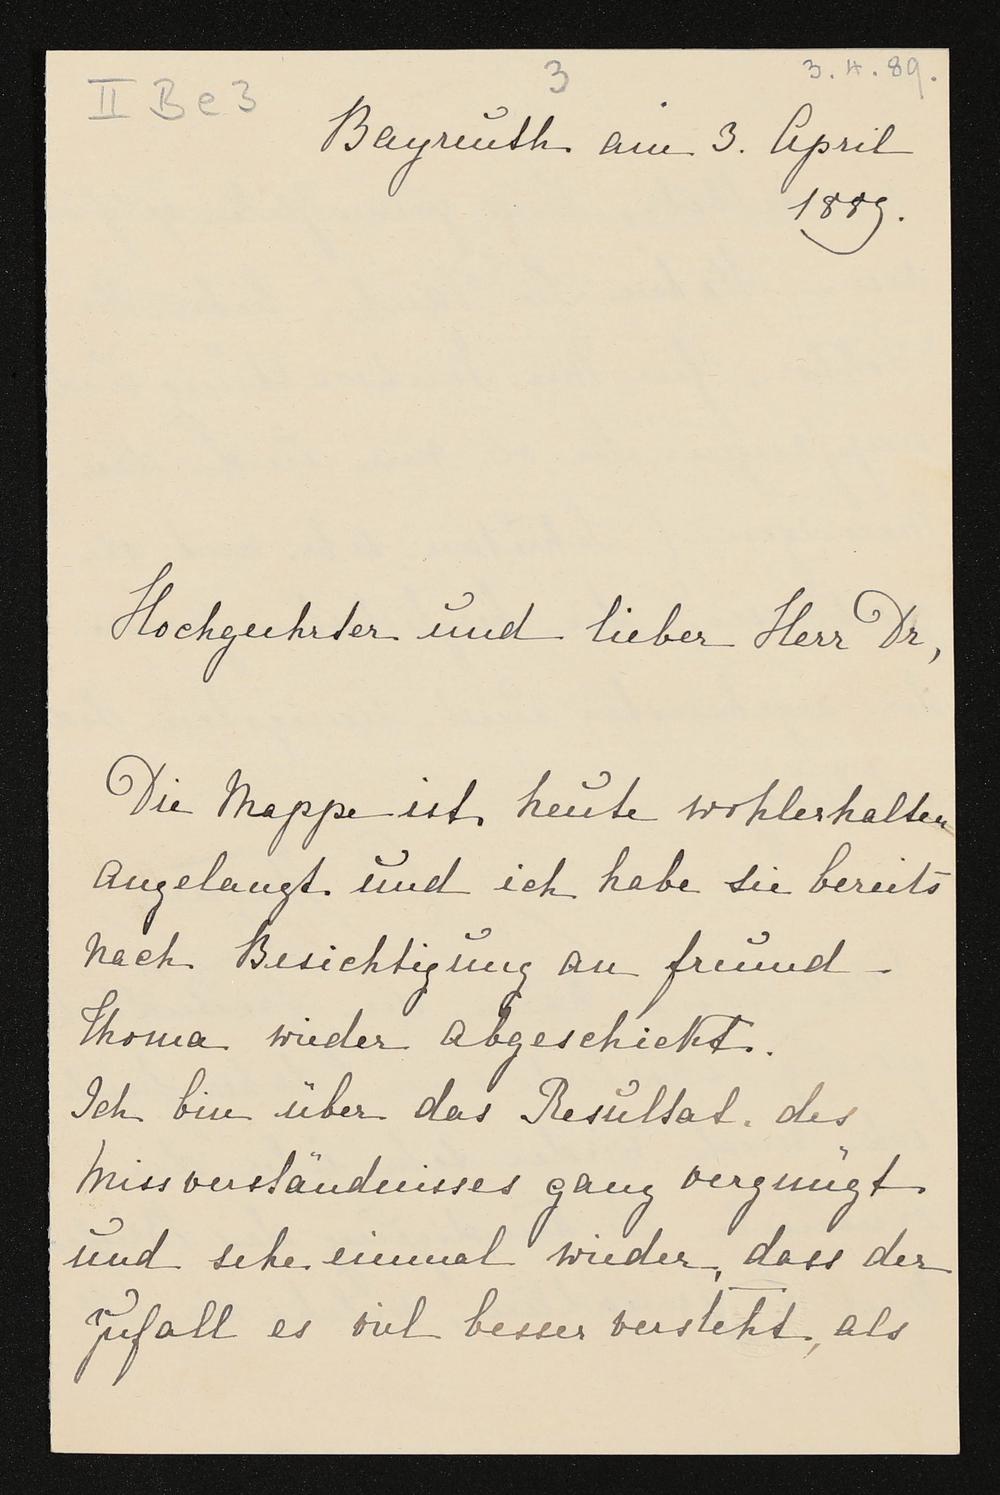 II Be 3
3
3. 4. 89.
Bayreuth am 3. April
1889.
Hochgeehrter und lieber Herr Dr,
Die Mappe ist heute wohlerhalten
angelangt und ich habe sie bereits
nach Besichtigung an freund
Thoma wieder abgeschickt.
Ich bin über das Resultat des
Missverständnisses ganz vergnügt
und sehe einmal wieder, dass der
Zufall es viel besser versteht, als